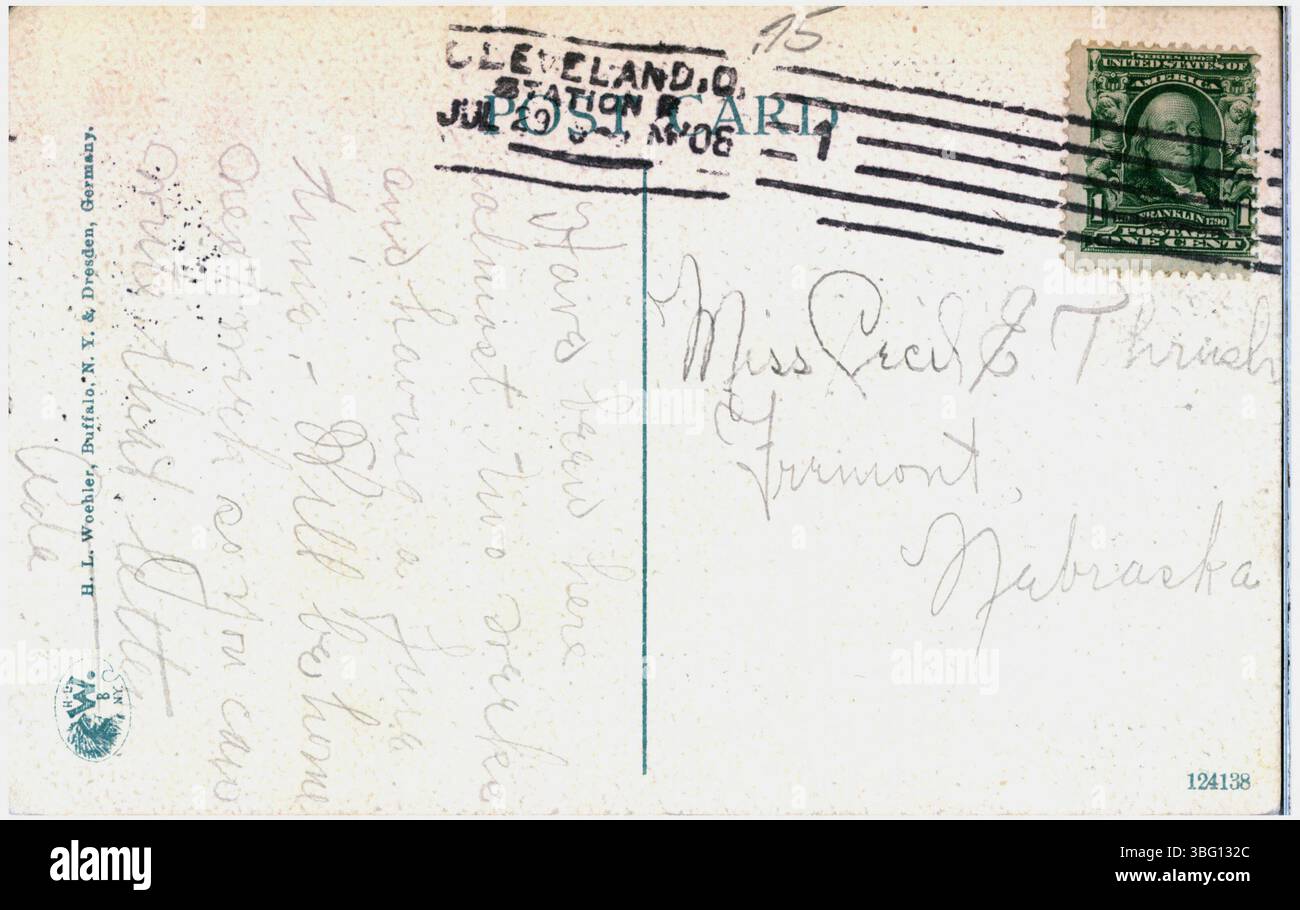 15
CLEVELAND, O.
STATION B
JUL 29 '08
1
POST CARD
SERIES 1902
UNITED STATES OF
AMERICA
FRANKLIN 1790
POSTAGE
1 ONE CENT 1
Have been here
almost two weeks
and having a fine
time - Will be home
next week so you can
this letter
Ada
Miss Cecil E Thrush
Fremont,
Nebraska
H. L. Woehler, Buffalo, N. Y. & Dresden, Germany.
H.L.
W.
B
N.Y.
124138
alamy
Image ID: 3BG132C
www.alamy.com